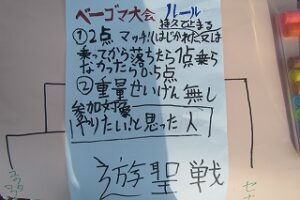 ベーゴマ大会 ルール
①2点 マッチ!(はじかれた又は
乗ってから落ちたら1点乗ら
なかったら0点
②重量せいげん無し
参加対象
やりたい!と思った人
遊聖戦